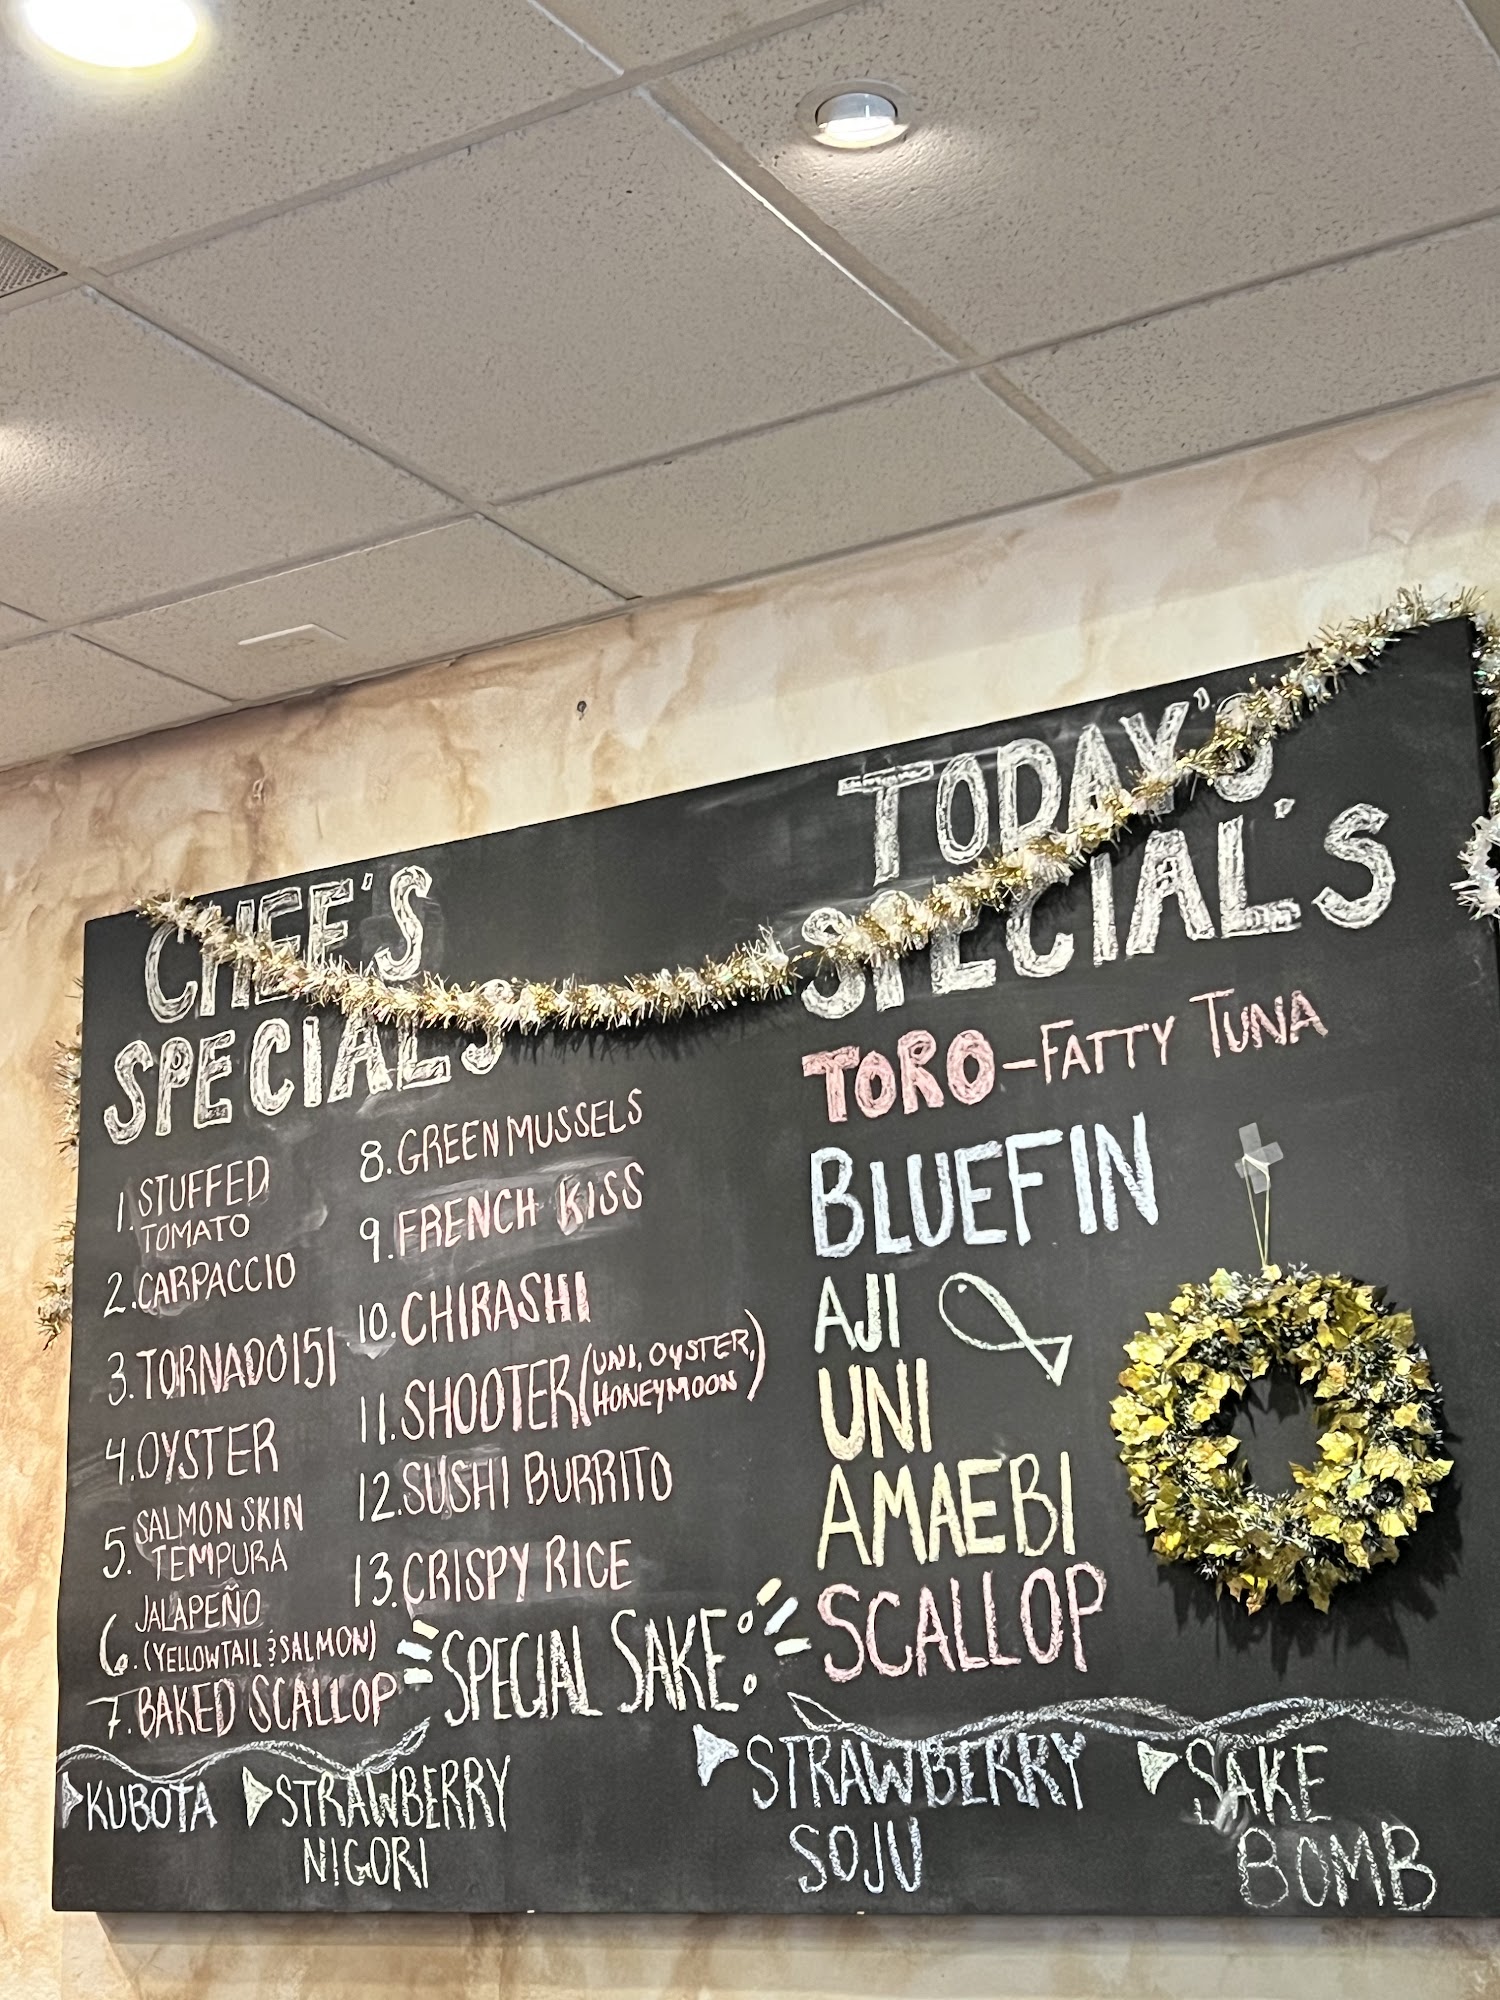 CHEF'S
SPECIAL'S
1. STUFFED
TOMATO
2. CARPACCIO
3. TORNADO 151
4. OYSTER
5. SALMON SKIN
TEMPURA
6. JALAPEÑO
(YELLOWTAIL & SALMON)
7. BAKED SCALLOP
8. GREEN MUSSELS
9. FRENCH KISS
10. CHIRASHI
11. SHOOTER (UNI, OYSTER,
HONEYMOON)
12. SUSHI BURRITO
13. CRISPY RICE
TODAY'S
SPECIAL'S
TORO - FATTY TUNA
BLUEFIN
AJI
UNI
AMAEBI
SCALLOP
SPECIAL SAKE:
KUBOTA
STRAWBERRY
NIGORI
STRAWBERRY
SOJU
SAKE
BOMB